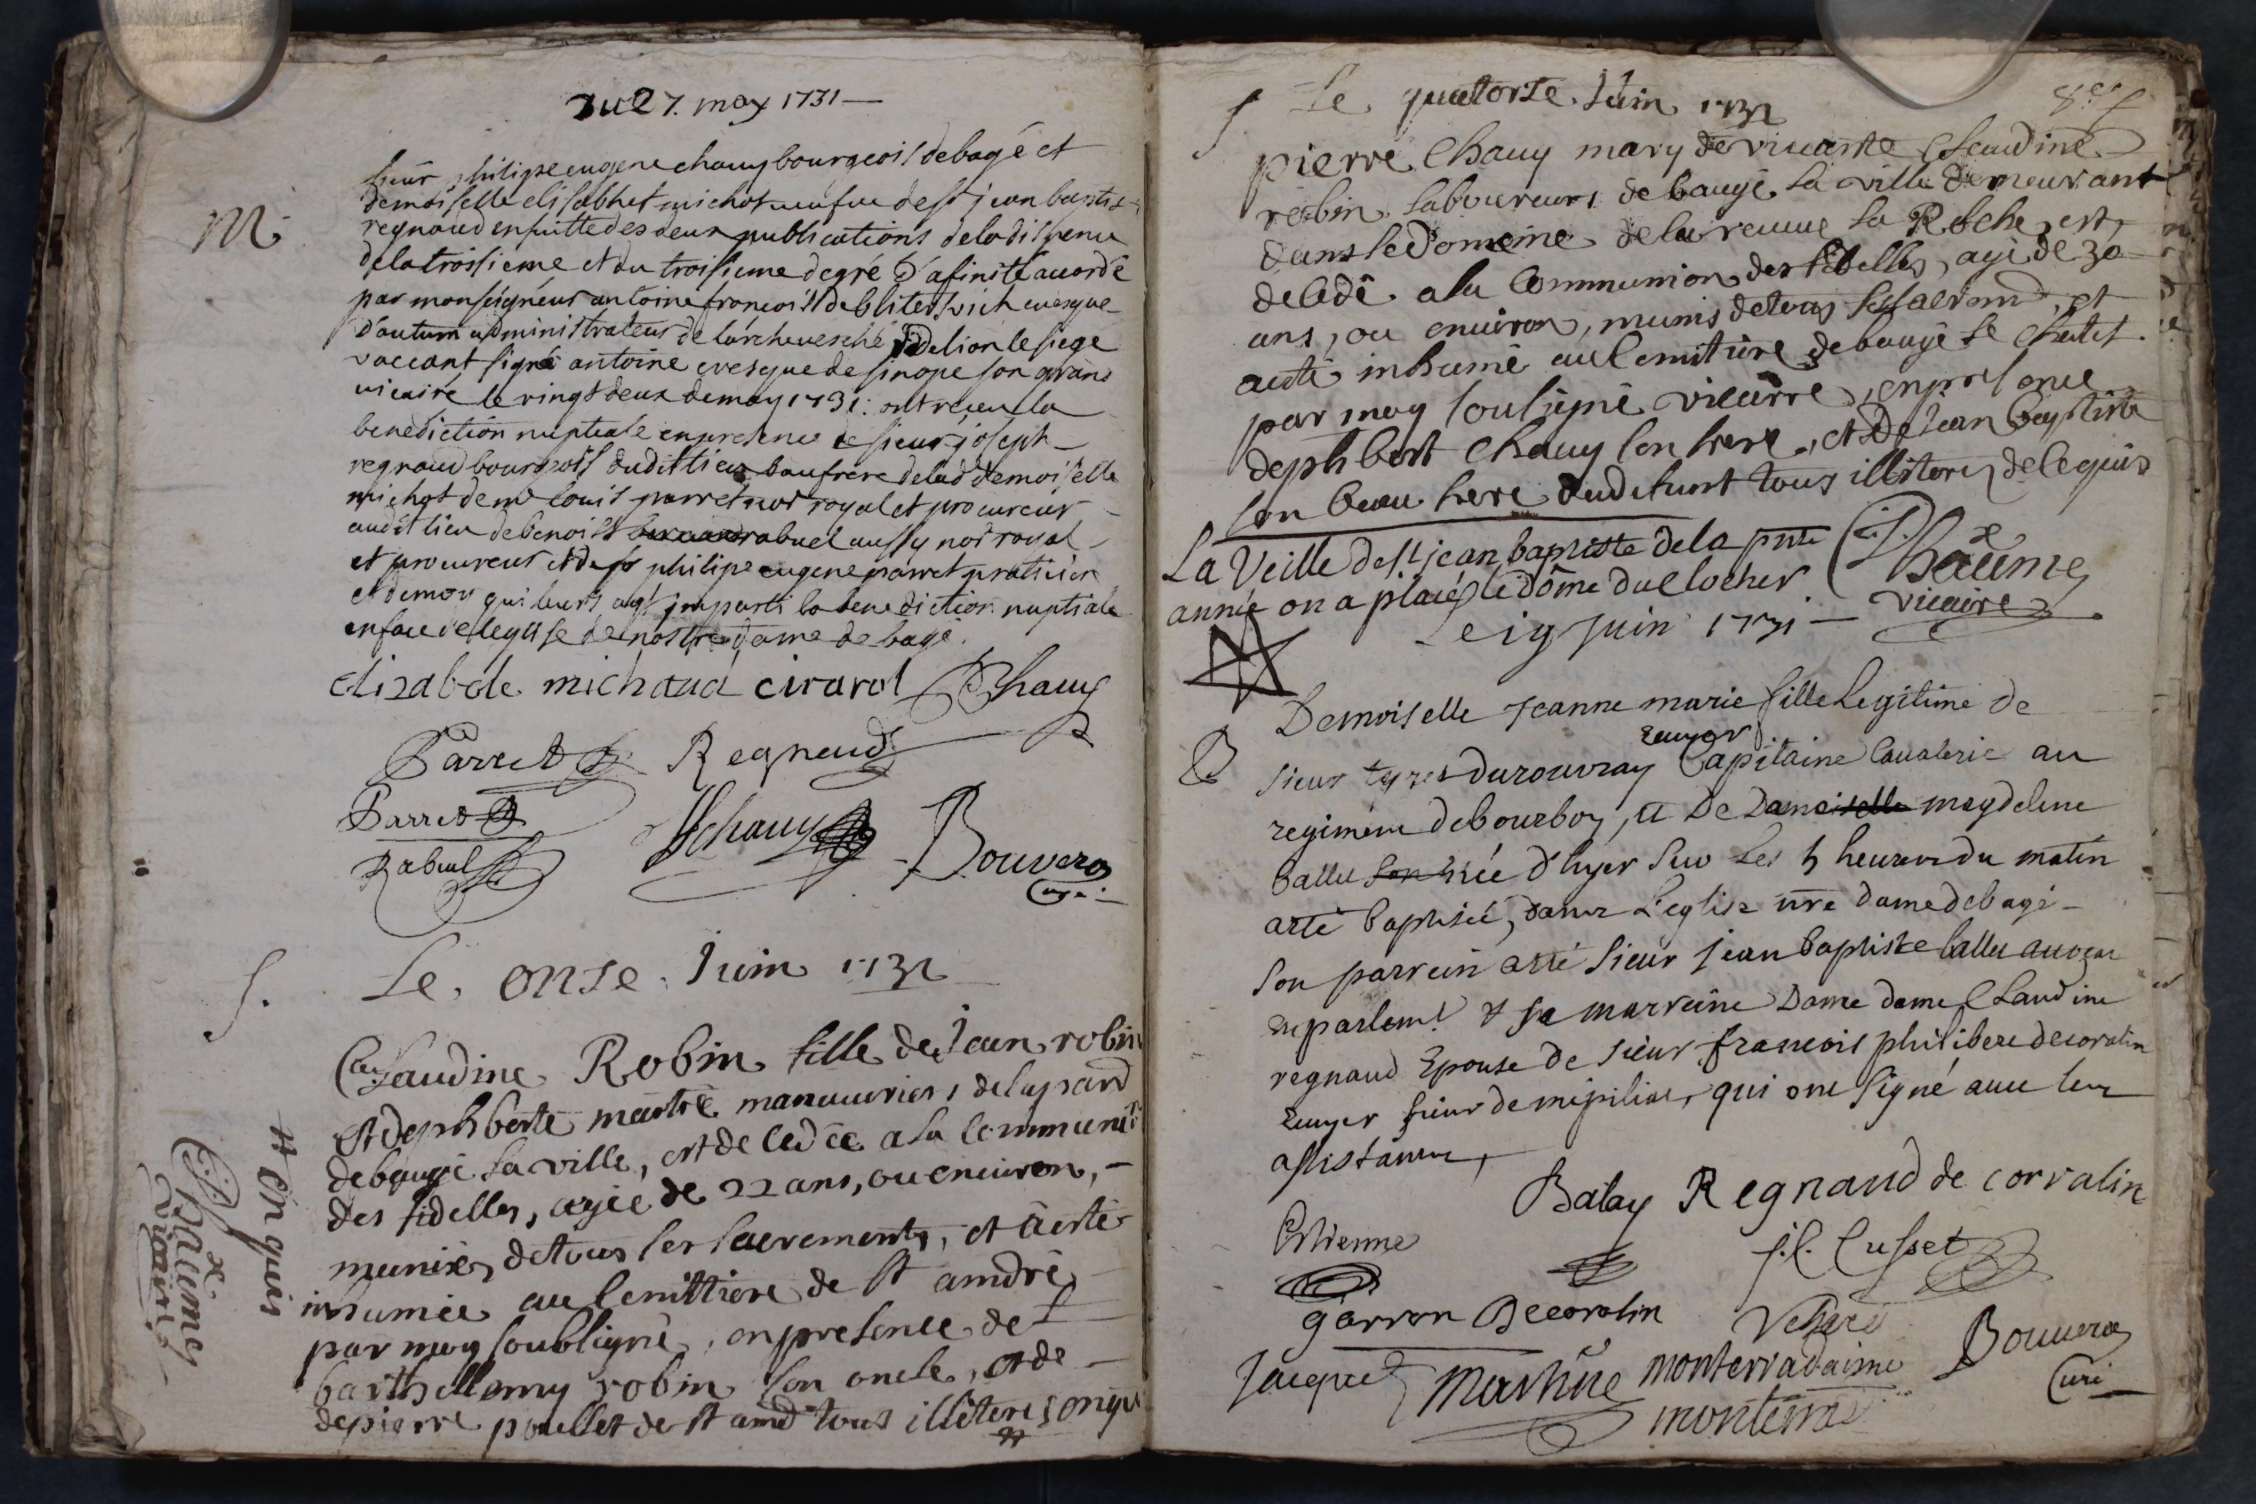 du 27. may 1731 —
M.
sieur philipe eugene chauy bourgeois de bagé et
demoiselle elisabhet michot de jean baptis
regnaud ensuitte des deux publications de la dispence
de la troisieme et du troisieme degré d'afinité accordé
par monseigneur antoine francois de bliterswich evesque
d'autum administrateur de l'archevesché de lion le siege
vaccant signé antoine evesque de sinope son grand
vicaire le vingt deux de may 1731: ont reçeu la
benediction nuptiale en presence de sieur joseph
regnaud bourgeois dudit lieu baufrere de lad demoiselle
michot de me louis parret not royal et procureur
audit lieu de benoist rabuel aussy not royal
et procureur et de philipe eugene parret praticien
et de moy qui leurs ay imparti la benediction nuptiale
en face de leglise de nostre dame de bagé.
elizabele michaud cirarol Chauy
Parret Regnaud
Parret
Chauy Bouveron
Rabuel
Curé
S. Le onse Juin 1731
Claudine Robin fille de Jean robin
et de phberte manuvriers de la par
de baugé la ville, est decedée a la communi
des fidelles, agée de 22 ans, ou environ,
munie de tous les sacrements, et a esté
inhumée au cemittiere de st andré
par moy soubsigné, en presence de
barthellemy robin son oncle, et de
de pierre poullet de st and tous illiteres enqu
# enquis
Rhaume
vicaire
S. Le quatorse Juin 1731
pierre Chauy mary de vivante Claudine
robin laboureurs de baugé la ville demeurant
dans le Domeine de la veuve la Roche, est
decedé a la Communion des fidelles, agé de 30
ans, ou environ, munis de tous et
a esté inhumé au Cemitiere de baugé le Chatel
par moy soulsigné vicaire, en presence
de phbert Chauy son frere, et de Jean baptiste
son beau frere tous illiteres de ce quis
La Veille de st jean baptiste de la pnte
année on a placé le dôme du clocher
Rhaume
vicaire
Le 19 Juin 1731 —
Demoiselle Jeanne marie fille Legitime de
Ecuyer
B
Sieur durouvray Capitaine Cavalerie au
regiment de bourbon, et De Dame magdelene
ballu née d'hyer sur les 5 heures du matin
a esté baptisée, dans L'eglise nre dame de bagé
Son parrein a esté Sieur Jean baptiste ballu avocat
en parlemt & sa marreine Dame dame Claudine
regnaud Epouse de Sieur francois philibere decoralin
Ecuyer sieur de qui ont signé avec leur
assistance,
Balay Regnaud de corvalin
Estienne J.C. Cusset
garron Decoralin
Jacquet Marhüe monterradaime Bouveron
monterra
Curé